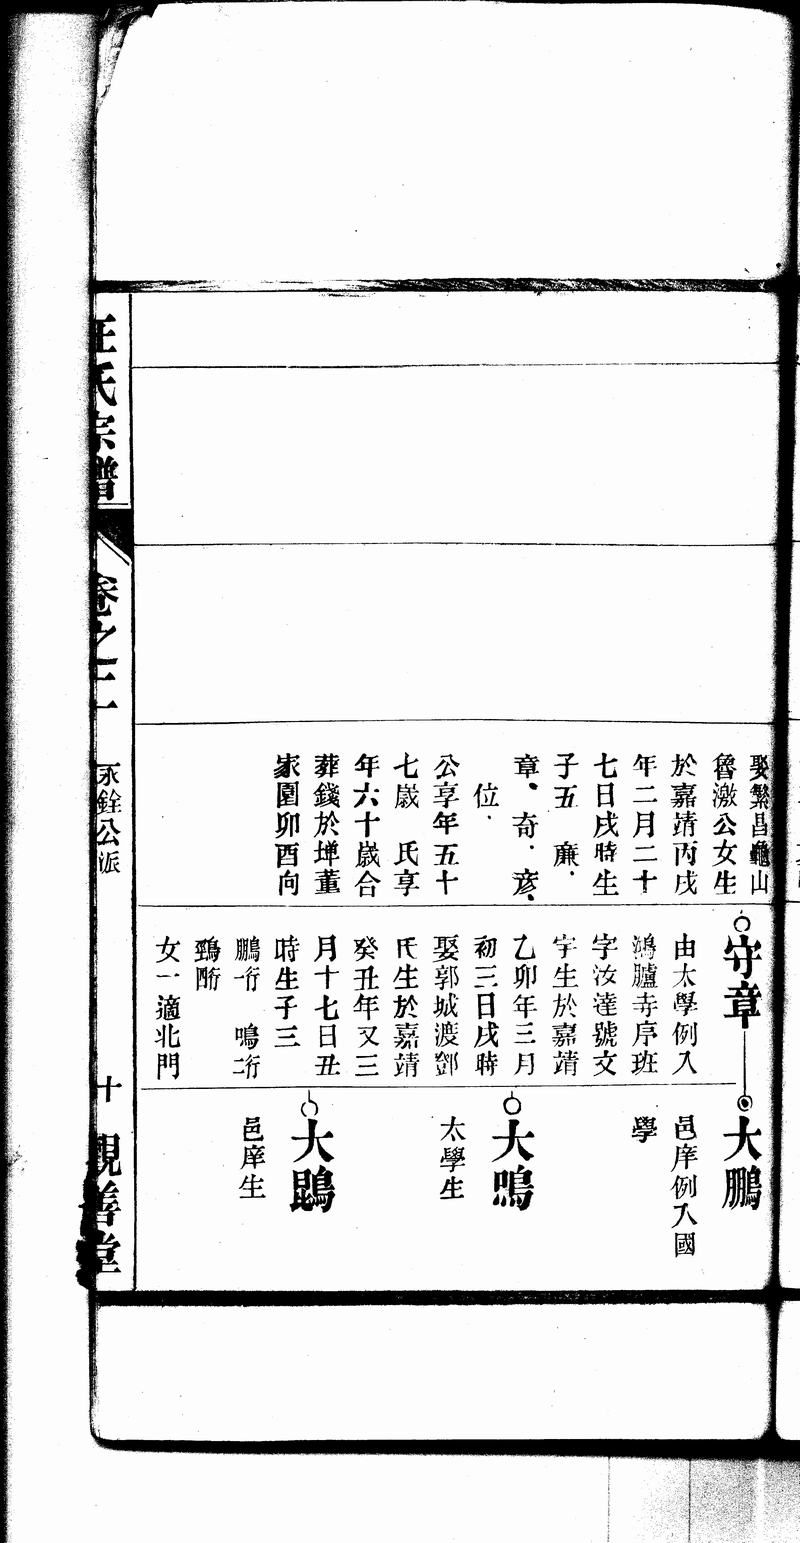 娶繁昌龜山
魯激公女生
於嘉靖丙戌
年二月二十
七日戌時生
子五 廉、
章、奇、彥、
位、
公享年五十
七歲 氏享
年六十歲合
葬錢於埤董
家園卯酉向
守章
由太學例入
鴻臚寺序班
字汝達號文
宇生於嘉靖
乙卯年三月
初三日戌時
娶郭城渡鄧
氏生於嘉靖
癸丑年又三
月十七日丑
時生子三
鵬一行 鳴二行
女一適北門
大鵬
邑庠例入國
學
大鳴
太學生
大鵾
邑庠生
汪氏宗譜
卷之二
永銓公派
十
親善堂